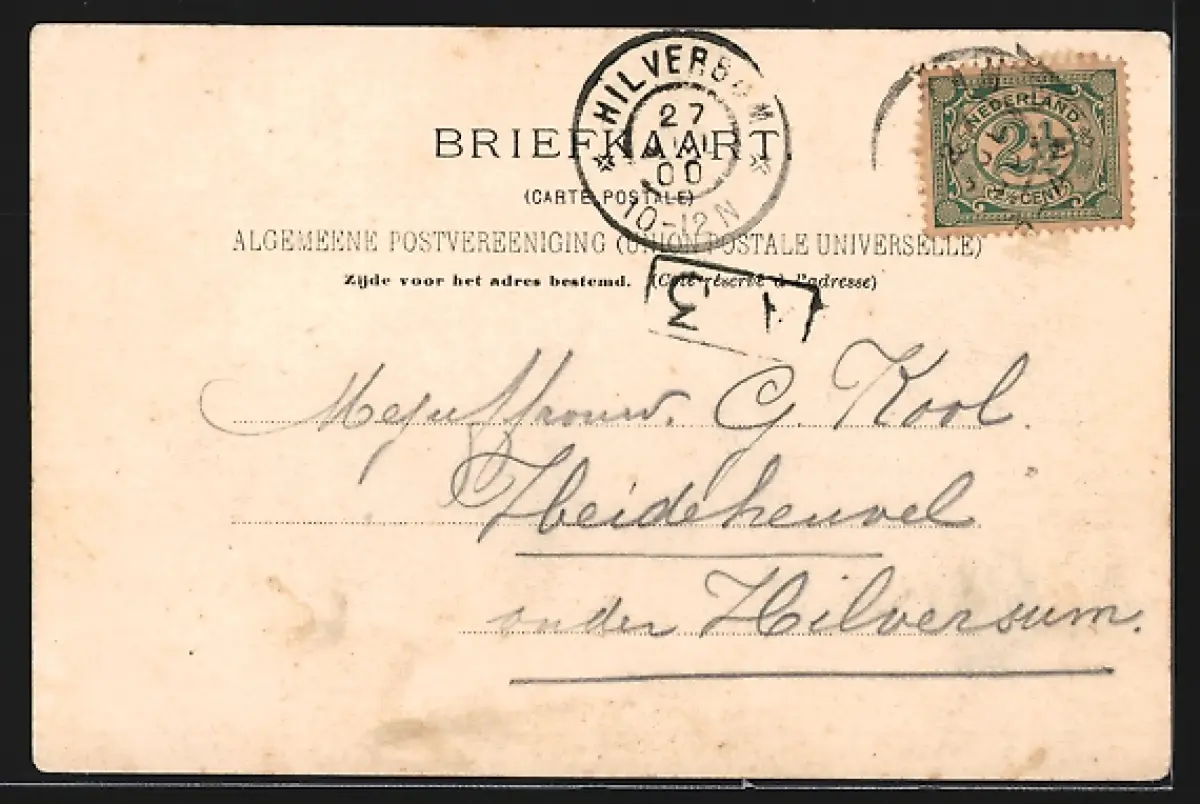 HILVERSUM
27
00
10-12N
NEDERLAND
2½
2½ CENT
BRIEFKAART.
(CARTE POSTALE)
ALGEMEENE POSTVEREENIGING (UNION POSTALE UNIVERSELLE)
Zijde voor het adres bestemd. (Côté réservé à l'adresse)
1
3
Mejuffrouw. G. Kool.
Heideheuvel
onder Hilversum.